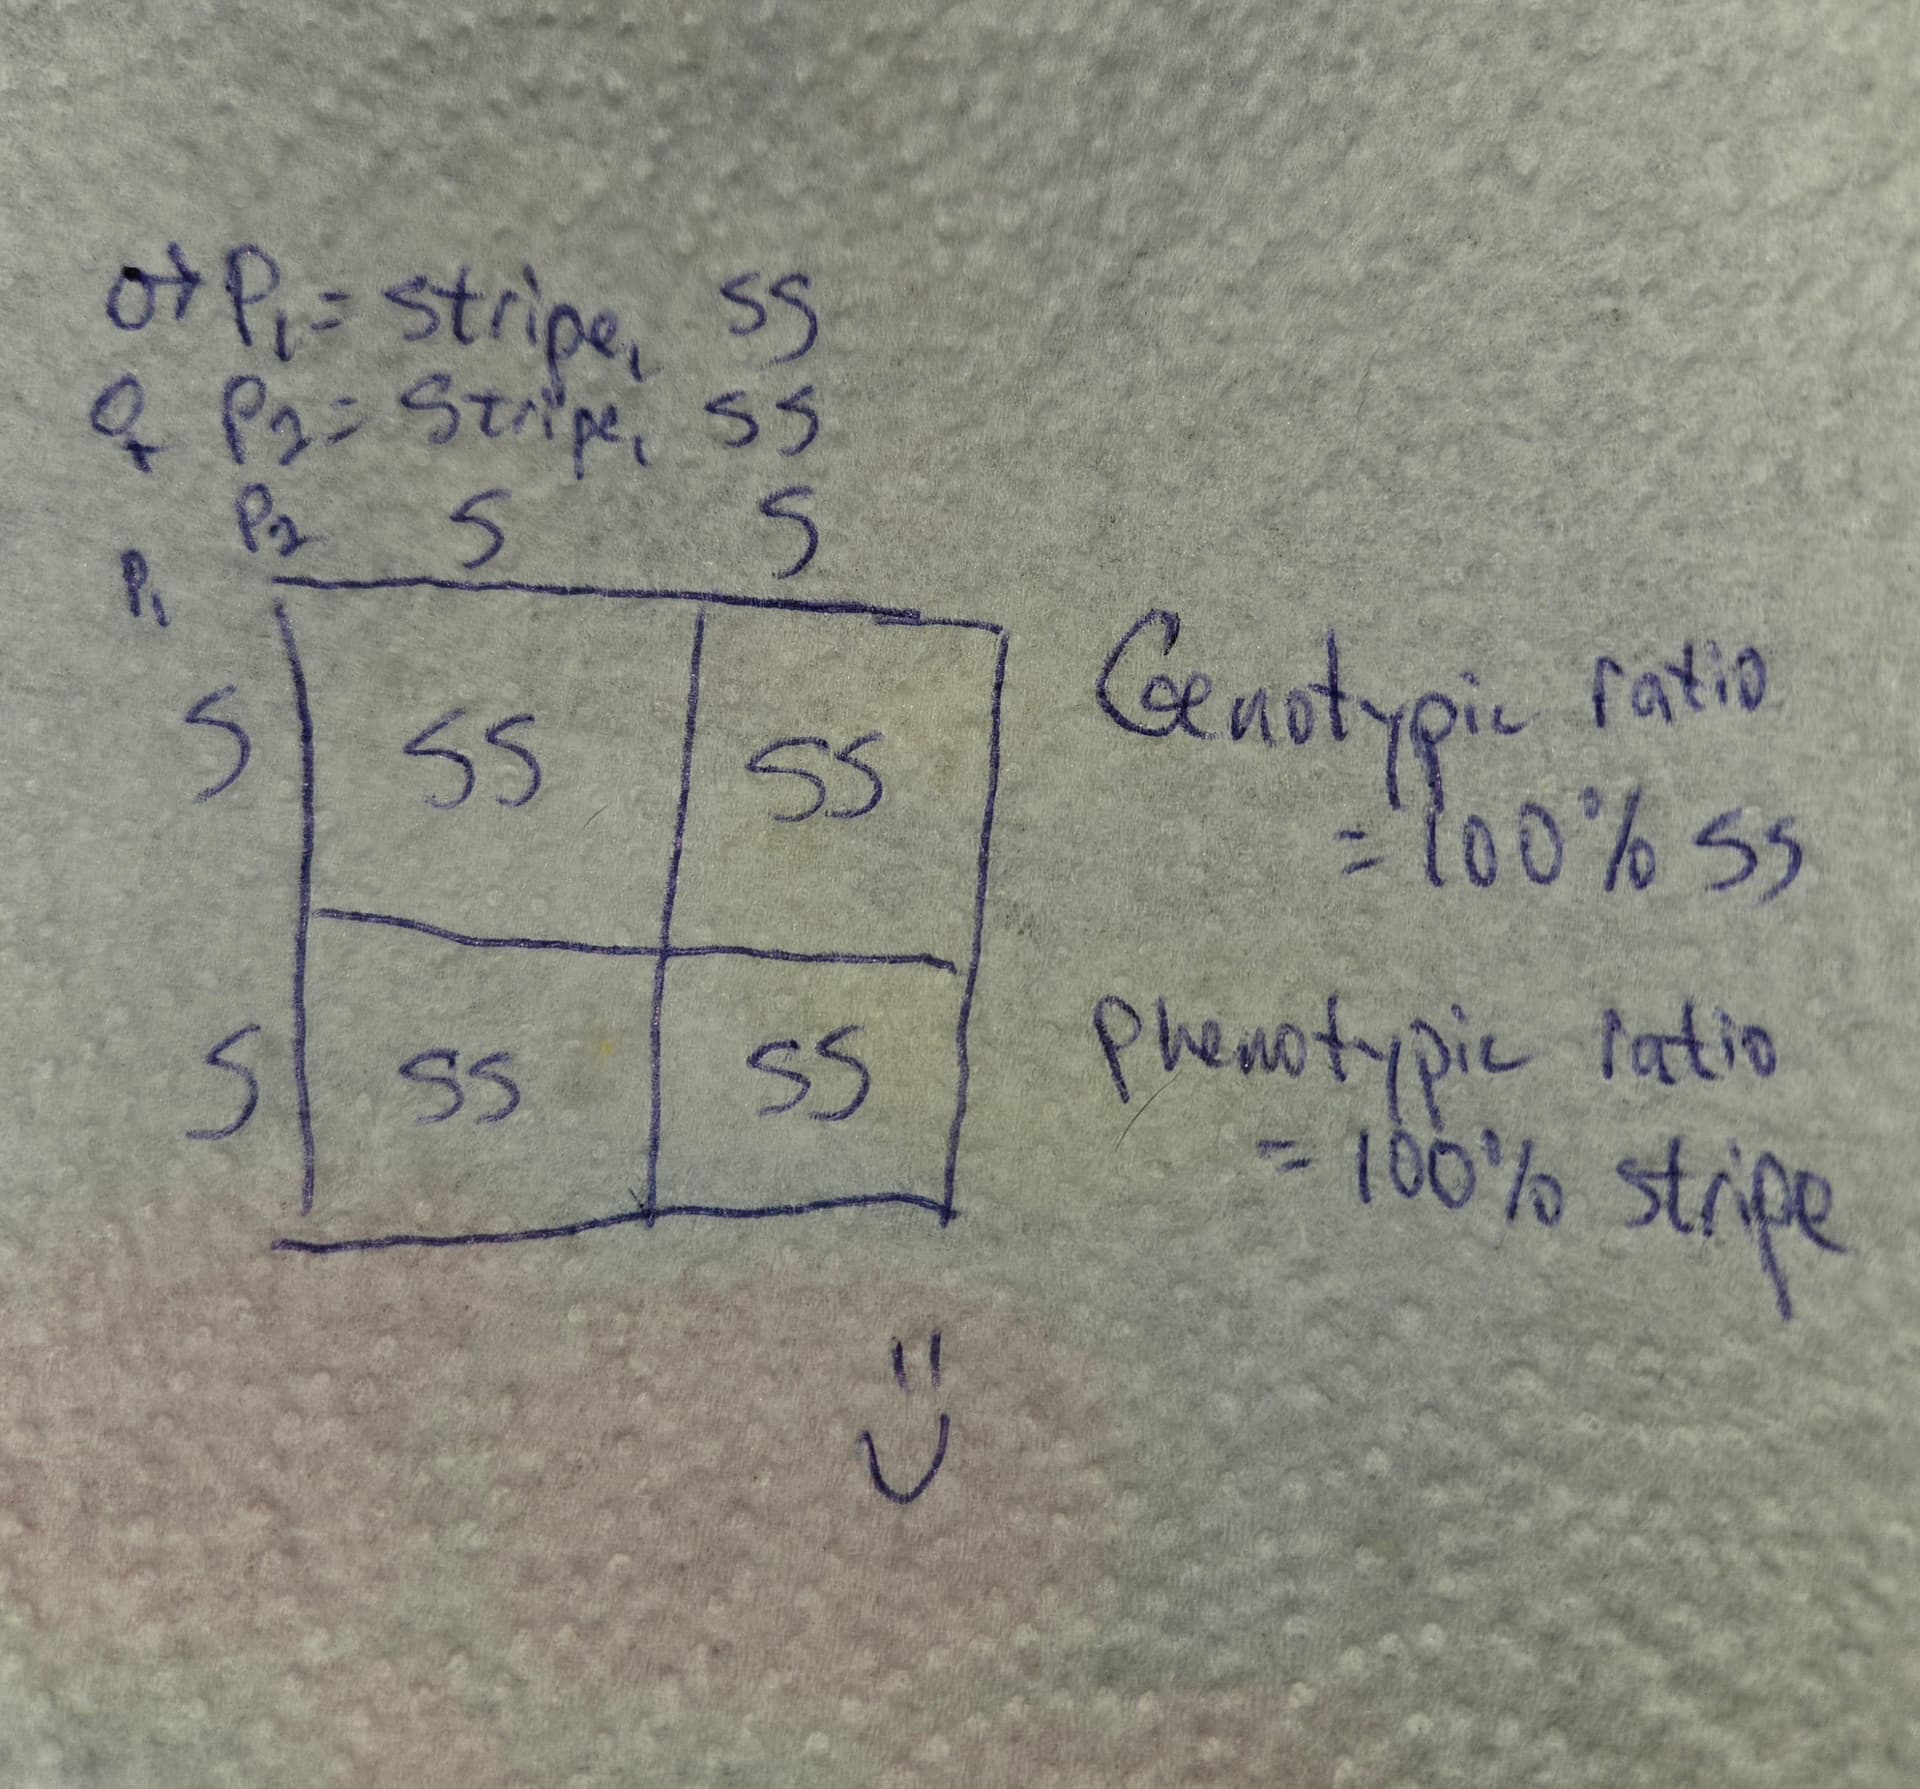 ♂ P₁ = stripe, ss
♀ P₂ = stripe, ss
P₂ s s
P₁
s ss ss
s ss ss
Genotypic ratio
= 100% ss
phenotypic ratio
= 100% stripe